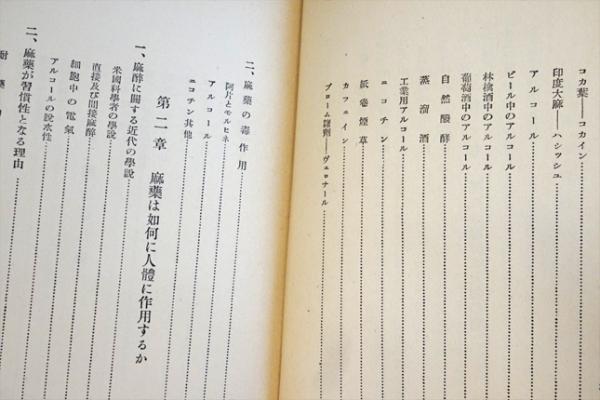 コカ葉――コカイン
印度大麻――ハシッシュ
アルコール
ビール中のアルコール
林檎酒中のアルコール
葡萄酒中のアルコール
自然醱酵
蒸溜酒
工業用アルコール
ニコチン
紙巻煙草
カフェイン
ブローム諸劑――ヴェロナール
二、麻藥の毒作用
阿片とモルヒネ
アルコール
ニコチン其他
第二章 麻藥は如何に人體に作用するか
一、麻醉に關する近代の學說
米國科學者の學說
直接及び間接麻醉
細胞中の電氣
アルコールの脫水性
二、麻藥が習慣性となる理由
耐藥